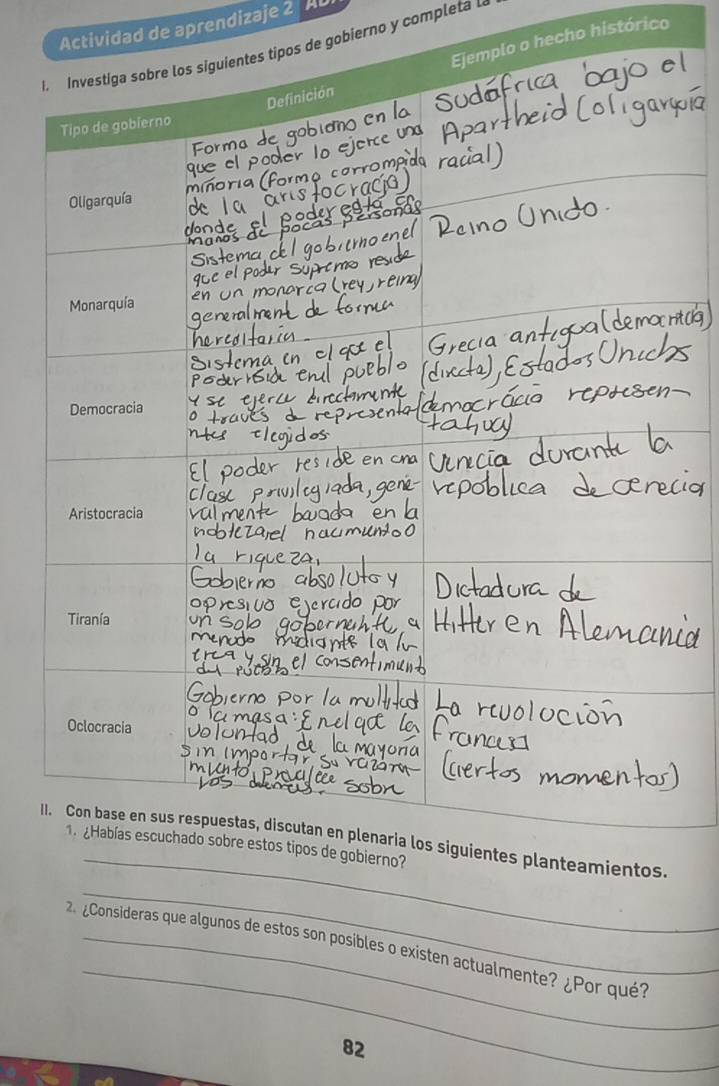 Actividad de aprendizaje 2
I. Investiga sobre los siguientes tipos de gobierno y completa la
Tipo de gobierno
Definición
Ejemplo o hecho histórico
Oligarquía
Forma de gobierno en la
que el poder lo ejerce una
minoria (forma corrompida
de la aristocracia)
donde el poder está en
manos de pocas personas
Sudáfrica bajo el
Apartheid (oligarquía
racial)
Monarquía
Sistema del gobierno en el
que el poder supremo reside
en un monarca (rey, reina)
generalment de forma
hereditaria.
Reino Unido.
Democracia
Sistema en el que el
poder reside en el pueblo
y se ejerce directamente
o través de representa
ntes elegidos
Grecia antigua (democracia)
(directa), Estados Unidos
(democrácia represen-
tativa)
Aristocracia
El poder reside en una
clase privilegiada, gene-
ralmente basada en la
nobleza, el nacimiento o
la riqueza,
Venecia durante la
republica de venecia
Tiranía
Gobierno absoluto y
opresivo ejercido por
un solo gobernante, a
menudo mediante la fu
erza y sin el consentimiento
del pueblo
Dictadura de
Hitler en Alemania
Oclocracia
Gobierno por la multitud
o la masa: En el que la
voluntad de la mayoria
sin importar su razona
miento, prevalece sobre
los demás.
La revolución
Francesa
(ciertos momentos)
II. Con base en sus respuestas, discutan en plenaria los siguientes planteamientos.
1. ¿Habías escuchado sobre estos tipos de gobierno?
2. ¿Consideras que algunos de estos son posibles o existen actualmente? ¿Por qué?
82